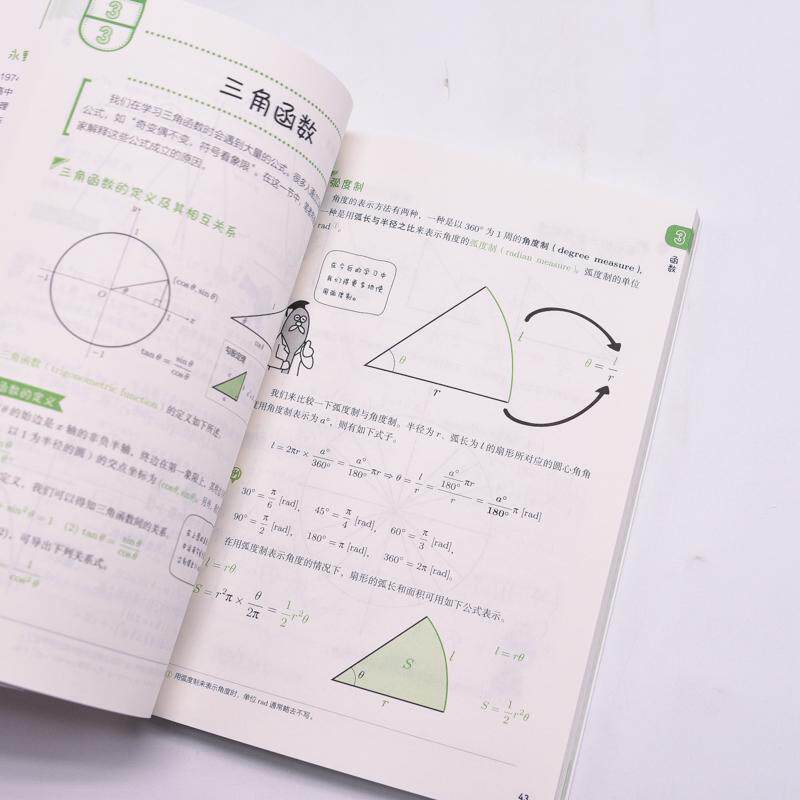 3
3
三角函数
我们在学习三角函数时会遇到大量的公式，很多人
公式，如“奇变偶不变，符号看象限”。在这一节中，
家解释这些公式成立的原因。
三角函数的定义及其相互关系
1
(cosθ, sinθ)
-1
O
θ
1
x
-1
tanθ = sinθ/cosθ
三角函数（trigonometric function）的定义如下所述。
函数的定义
θ的始边是 x 轴的非负半轴，终边在第一象限上，
以 1 为半径的圆）的交点坐标为 (cosθ, sinθ)。
定义，我们可以得知三角函数间的关系。
(2) tanθ = sinθ/cosθ
可导出下列关系式。
1/cos²θ
勾股定理
弧度制
角度的表示方法有两种，一种是以 360° 为 1 周的角度制（degree measure），
一种是用弧长与半径之比来表示角度的弧度制（radian measure）。弧度制的单位
rad①。
在今后的学习中
我们将更多地使
用弧度制。
θ
l
r
θ = l/r
我们来比较一下弧度制与角度制。半径为 r、弧长为 l 的扇形所对应的圆心角角
度用角度制表示为 a°，则有如下式子。
l = 2πr × a°/360° = a°/180° πr ⇒ θ = l/r = (a°/180° πr)/r = a°/180° π [rad]
例
30° = π/6 [rad]， 45° = π/4 [rad]， 60° = π/3 [rad]，
90° = π/2 [rad]， 180° = π [rad]， 360° = 2π [rad]。
在用弧度制表示角度的情况下，扇形的弧长和面积可用如下公式表示。
l = rθ
S = r²π × θ/2π = 1/2 r²θ
S
θ
l
r
l = rθ
S = 1/2 r²θ
① 用弧度制来表示角度时，单位 rad 通常略去不写。
3
函数
43